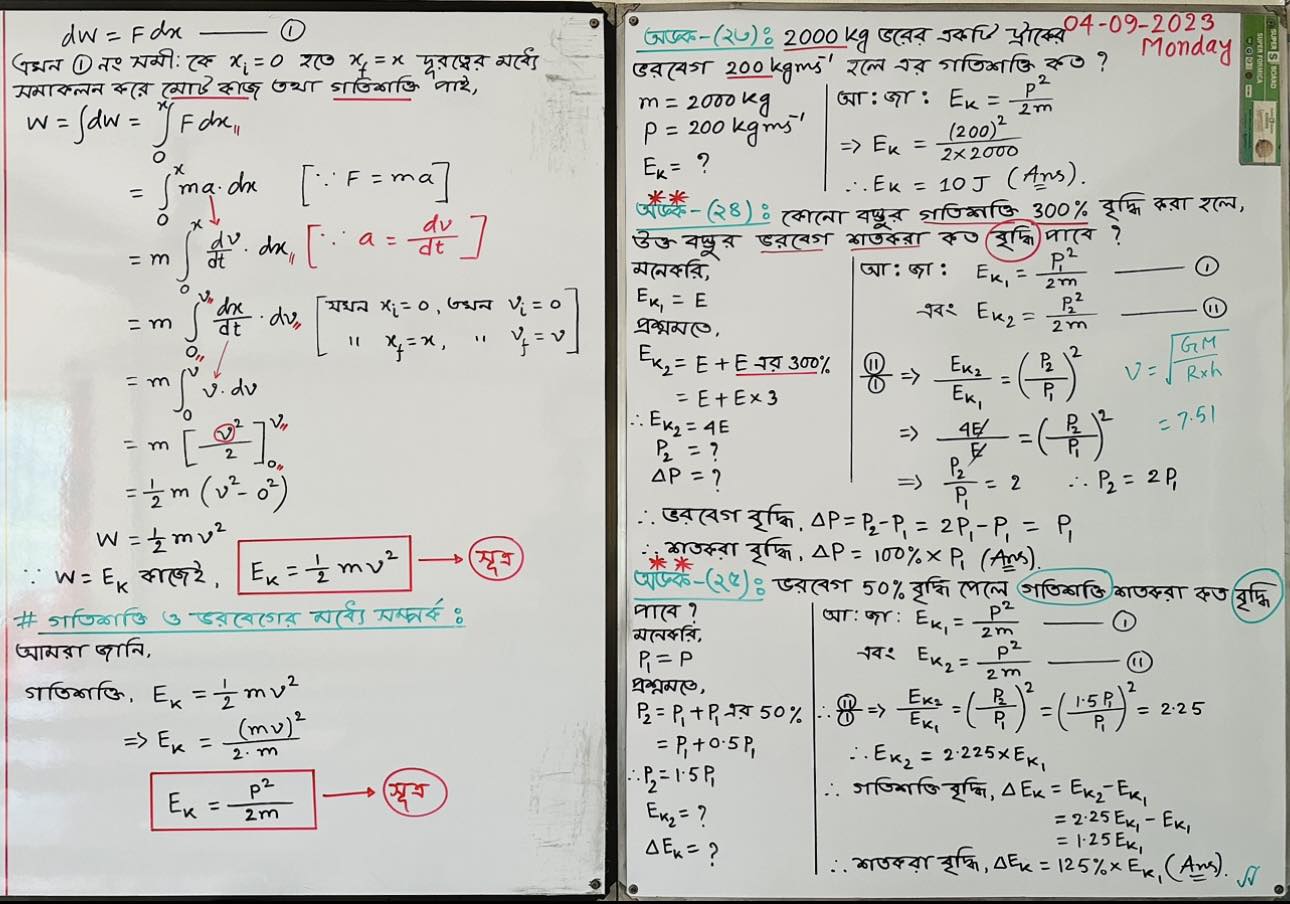 dW = Fdx —— ①
এখন ① নং সমী: কে xᵢ = 0 হতে x_f = x দূরত্বের মধ্যে
সমাকলন করে মোট কাজ তথা গতিশক্তি পাই,
W = ∫dW = ∫₀ˣ Fdx
= ∫₀ˣ ma·dx [∵ F = ma]
= m ∫₀ˣ dv/dt · dx [∵ a = dv/dt]
= m ∫₀ᵛ dx/dt · dv [যখন xᵢ = 0, তখন vᵢ = 0
" x_f = x, " v_f = v]
= m ∫₀ᵛ v·dv
= m [v²/2]₀ᵛ
= 1/2 m (v² - 0²)
W = 1/2 mv²
∵ W = Eₖ কাজেই, Eₖ = 1/2 mv² → সূত্র
# গতিশক্তি ও ভরবেগের মধ্যে সম্পর্ক :
আমরা জানি,
গতিশক্তি, Eₖ = 1/2 mv²
=> Eₖ = (mv)²/2·m
Eₖ = P²/2m → সূত্র
04-09-2023
Monday
SUPER BOARD
SUPER FORMICA
অংক-(২৩) : 2000 kg ভরের একটি ট্রাকের
ভরবেগ 200 kgms⁻¹ হলে এর গতিশক্তি কত ?
m = 2000 kg
P = 200 kgms⁻¹
Eₖ = ?
আ : জা : Eₖ = P²/2m
=> Eₖ = (200)²/2×2000
∴ Eₖ = 10 J (Ans).
** অংক-(২৪) : কোনো বস্তুর গতিশক্তি 300% বৃদ্ধি করা হলে,
উক্ত বস্তুর ভরবেগ শতকরা কত বৃদ্ধি পাবে ?
মনেকরি,
Eₖ₁ = E
প্রশ্নমতে,
Eₖ₂ = E + E এর 300%
= E + E × 3
∴ Eₖ₂ = 4E
P₂ = ?
ΔP = ?
আ : জা : Eₖ₁ = P₁²/2m —— ①
এবং Eₖ₂ = P₂²/2m —— ⑪
⑪/① => Eₖ₂/Eₖ₁ = (P₂/P₁)²
=> 4E/E = (P₂/P₁)²
=> P₂/P₁ = 2 ∴ P₂ = 2P₁
v = √(GM/R×h)
= 7.51
∴ ভরবেগ বৃদ্ধি, ΔP = P₂-P₁ = 2P₁-P₁ = P₁
∴ শতকরা বৃদ্ধি, ΔP = 100% × P₁ (Ans).
** অংক-(২৫) : ভরবেগ 50% বৃদ্ধি পেলে গতিশক্তি শতকরা কত বৃদ্ধি
পাবে ?
মনেকরি,
P₁ = P
প্রশ্নমতে,
P₂ = P₁ + P₁ এর 50%
= P₁ + 0.5P₁
∴ P₂ = 1.5P₁
Eₖ₂ = ?
ΔEₖ = ?
আ : জা : Eₖ₁ = P²/2m —— ①
এবং Eₖ₂ = P²/2m —— ⑪
∴ ⑪/① => Eₖ₂/Eₖ₁ = (P₂/P₁)² = (1.5P₁/P₁)² = 2.25
∴ Eₖ₂ = 2.225 × Eₖ₁
∴ গতিশক্তি বৃদ্ধি, ΔEₖ = Eₖ₂ - Eₖ₁
= 2.25Eₖ₁ - Eₖ₁
= 1.25Eₖ₁
∴ শতকরা বৃদ্ধি, ΔEₖ = 125% × Eₖ₁ (Ans).